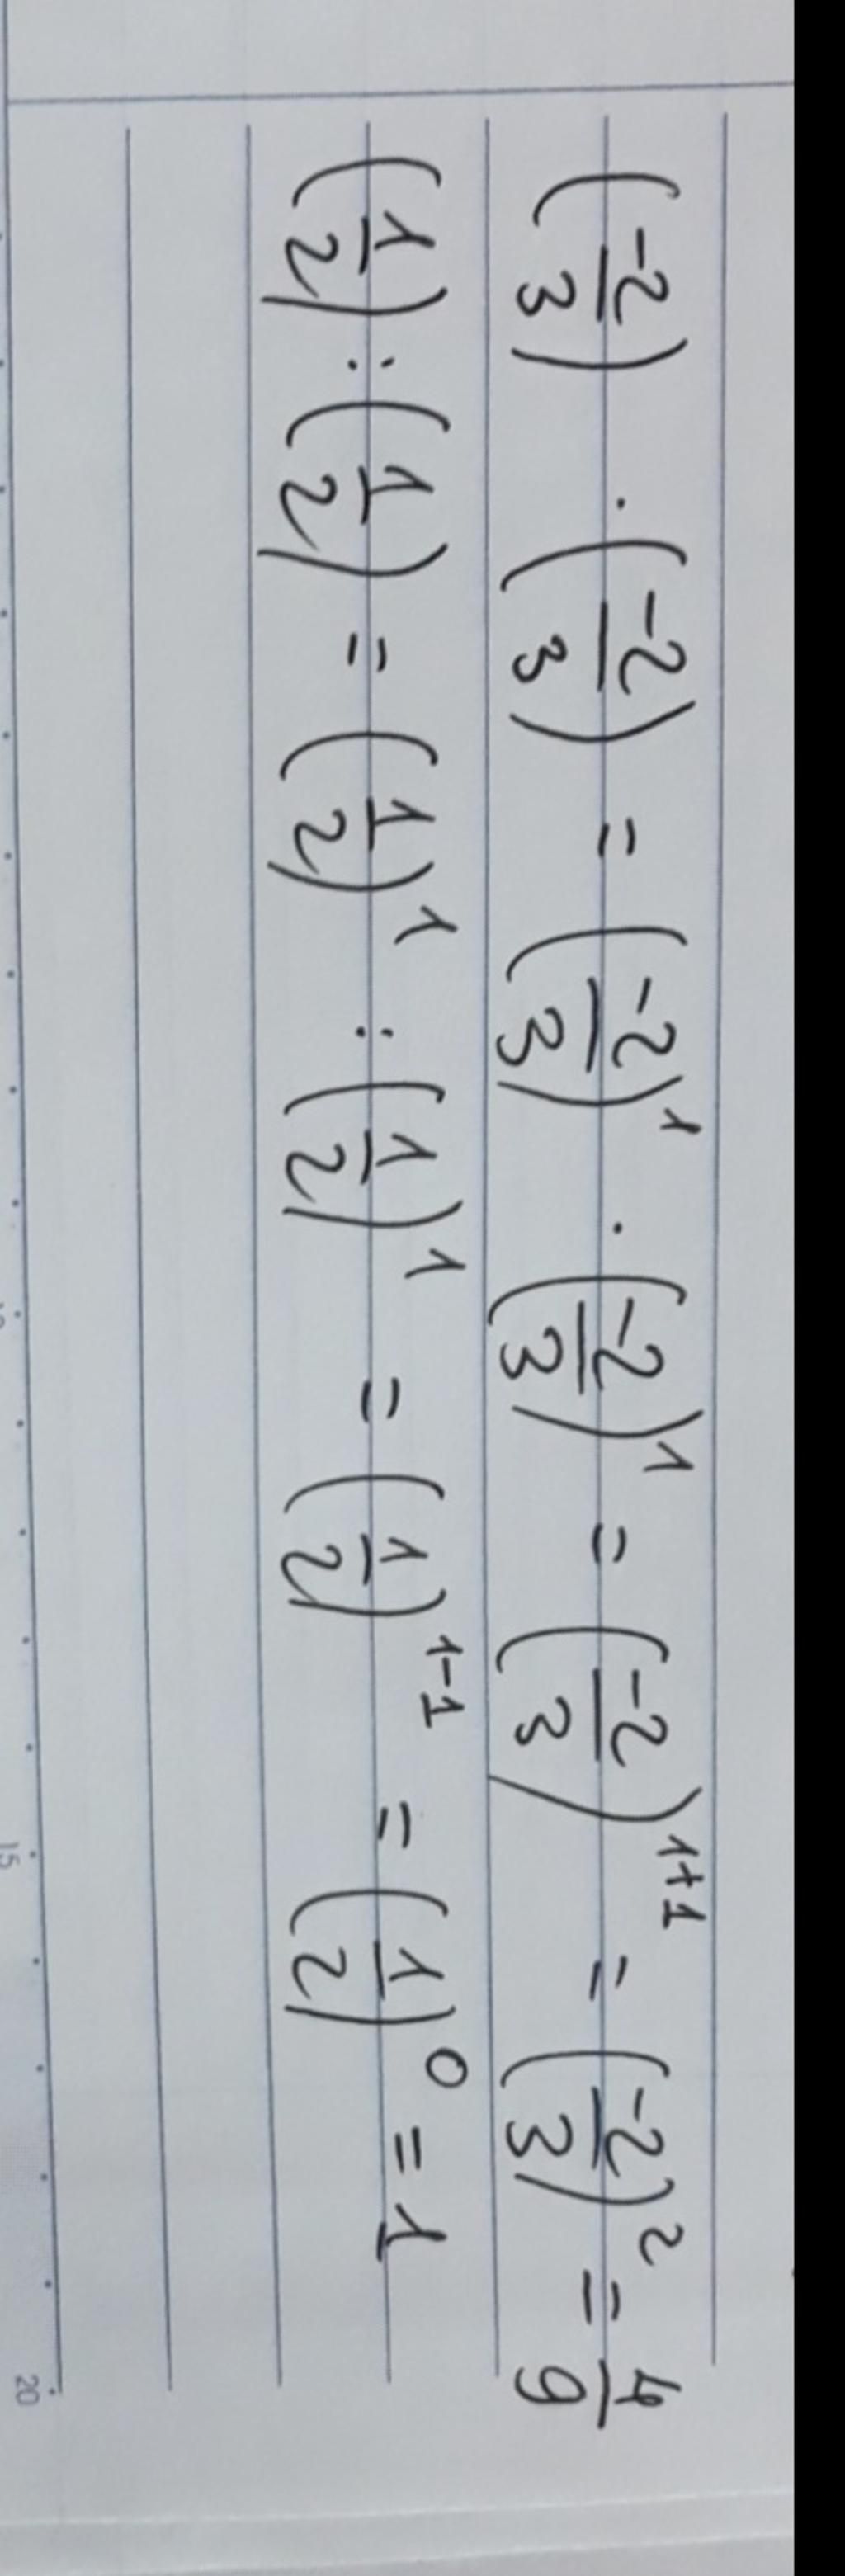 (-2/3) · (-2/3) = (-2/3)^1 · (-2/3)^1 = (-2/3)^1+1 = (-2/3)^2 = 4/9
(1/2) : (1/2) = (1/2)^1 : (1/2)^1 = (1/2)^1-1 = (1/2)^0 = 1
15
20